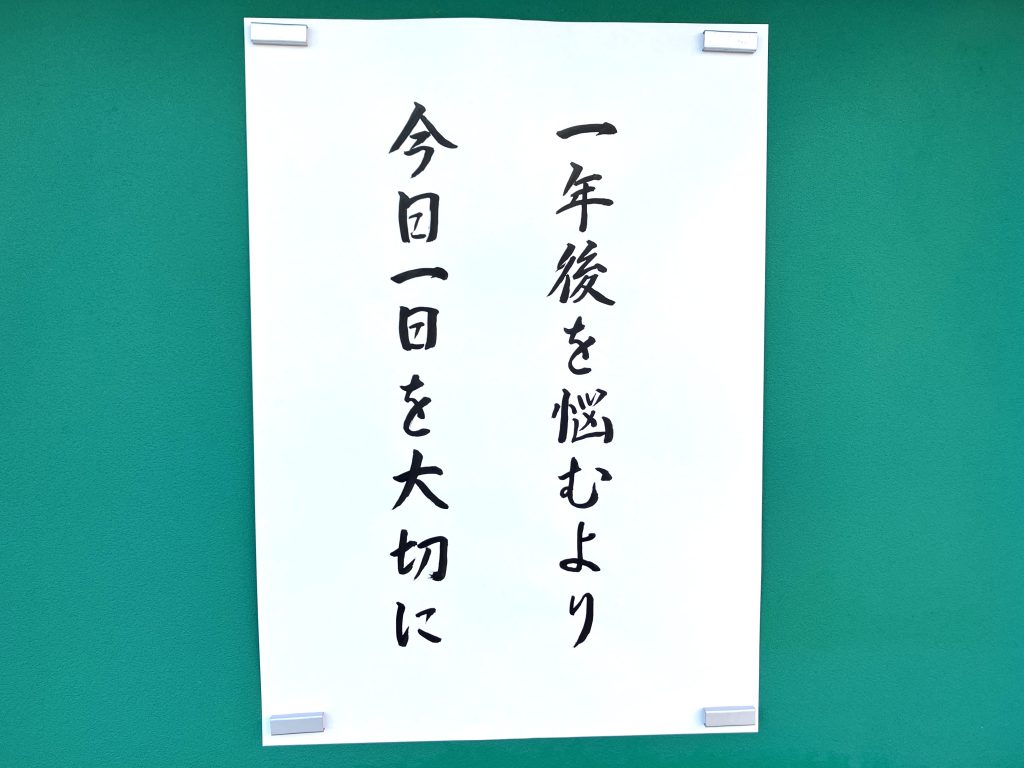 一年後を悩むより
今日一日を大切に